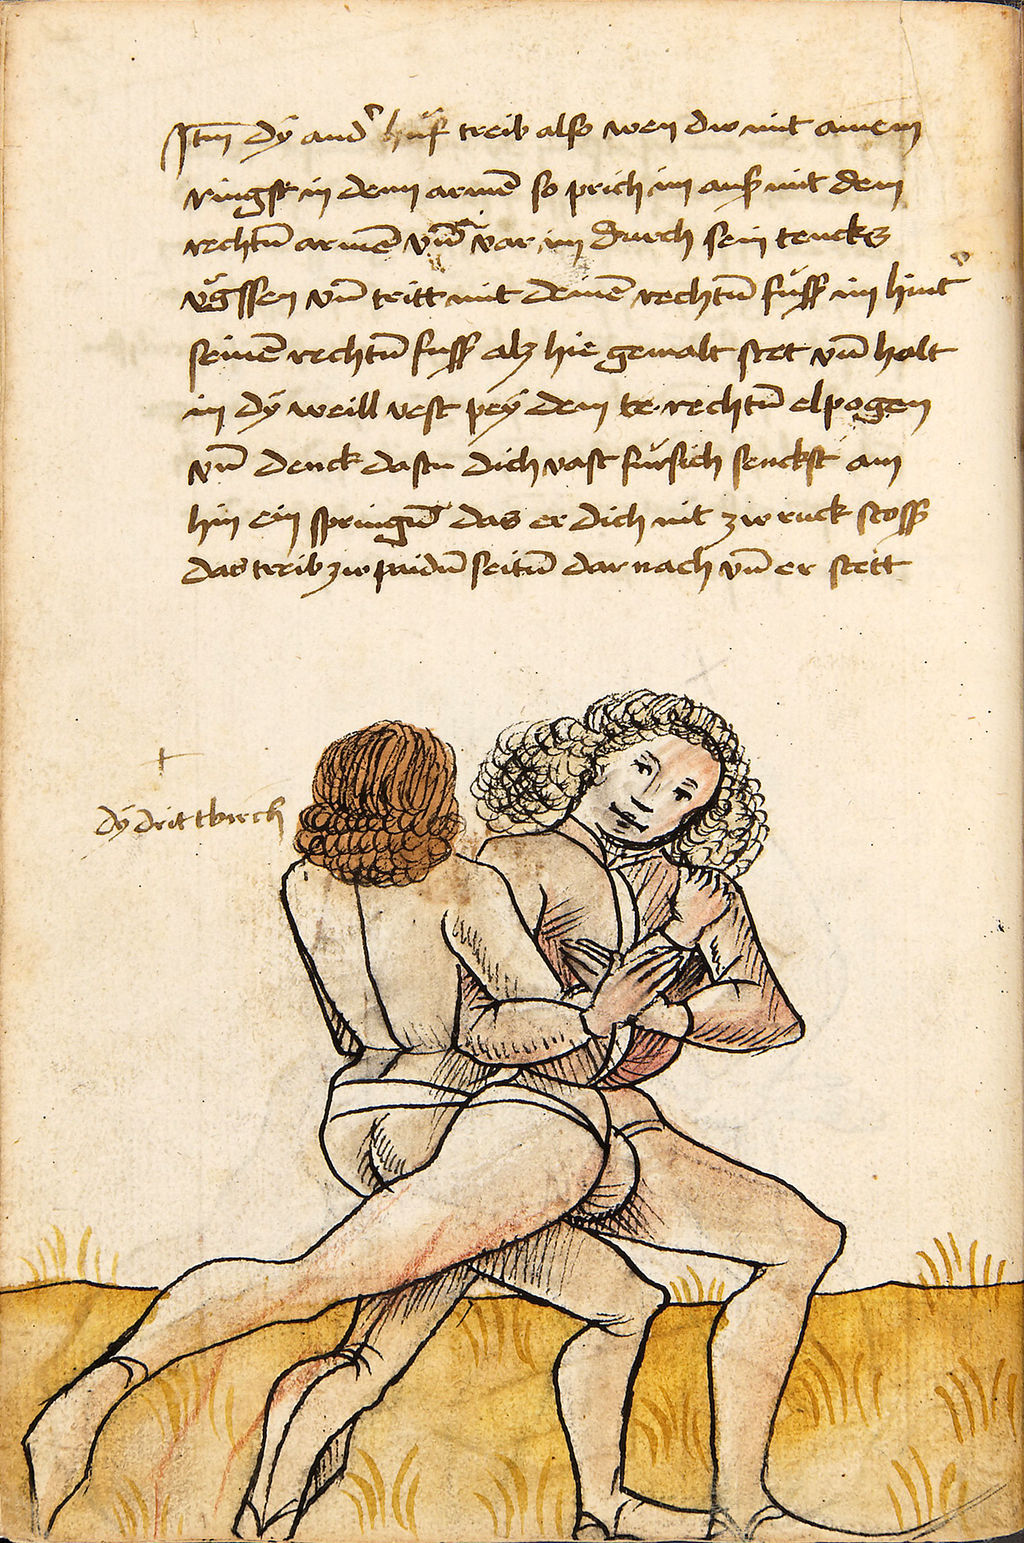 Jtm dÿ and' hüf treib also wen dw mit ainem
ringst in denn armē so prich im auß mit dem
rechtn̄ armē vn̄ var im durch sein tencks
vgssen vn̄ tritt mit deinē rechtn̄ füss im hint'
seinē rechtn̄ fuss alz hie gemalt stet vn̄ halt
in dÿ weill vest peÿ dem te rechtn̄ elpogen
vn̄ denck dastu dich vast fürsich senckst am
hin ein springn̄ das er dich nit zw ruck stoss
das treib zw paidn̄ seitn̄ dar nach vn̄ er stett
dÿ dritt